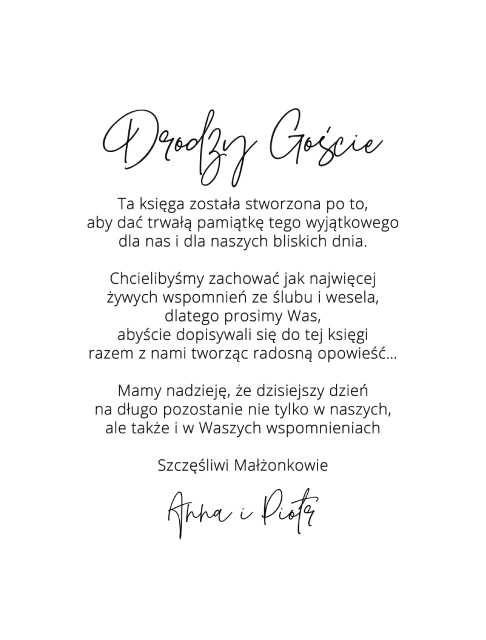 Drodzy Goście
Ta księga została stworzona po to,
aby dać trwałą pamiątkę tego wyjątkowego
dla nas i dla naszych bliskich dnia.
Chcielibyśmy zachować jak najwięcej
żywych wspomnień ze ślubu i wesela,
dlatego prosimy Was,
abyście dopisywali się do tej księgi
razem z nami tworząc radosną opowieść...
Mamy nadzieję, że dzisiejszy dzień
na długo pozostanie nie tylko w naszych,
ale także i w Waszych wspomnieniach
Szczęśliwi Małżonkowie
Anna i Piotr